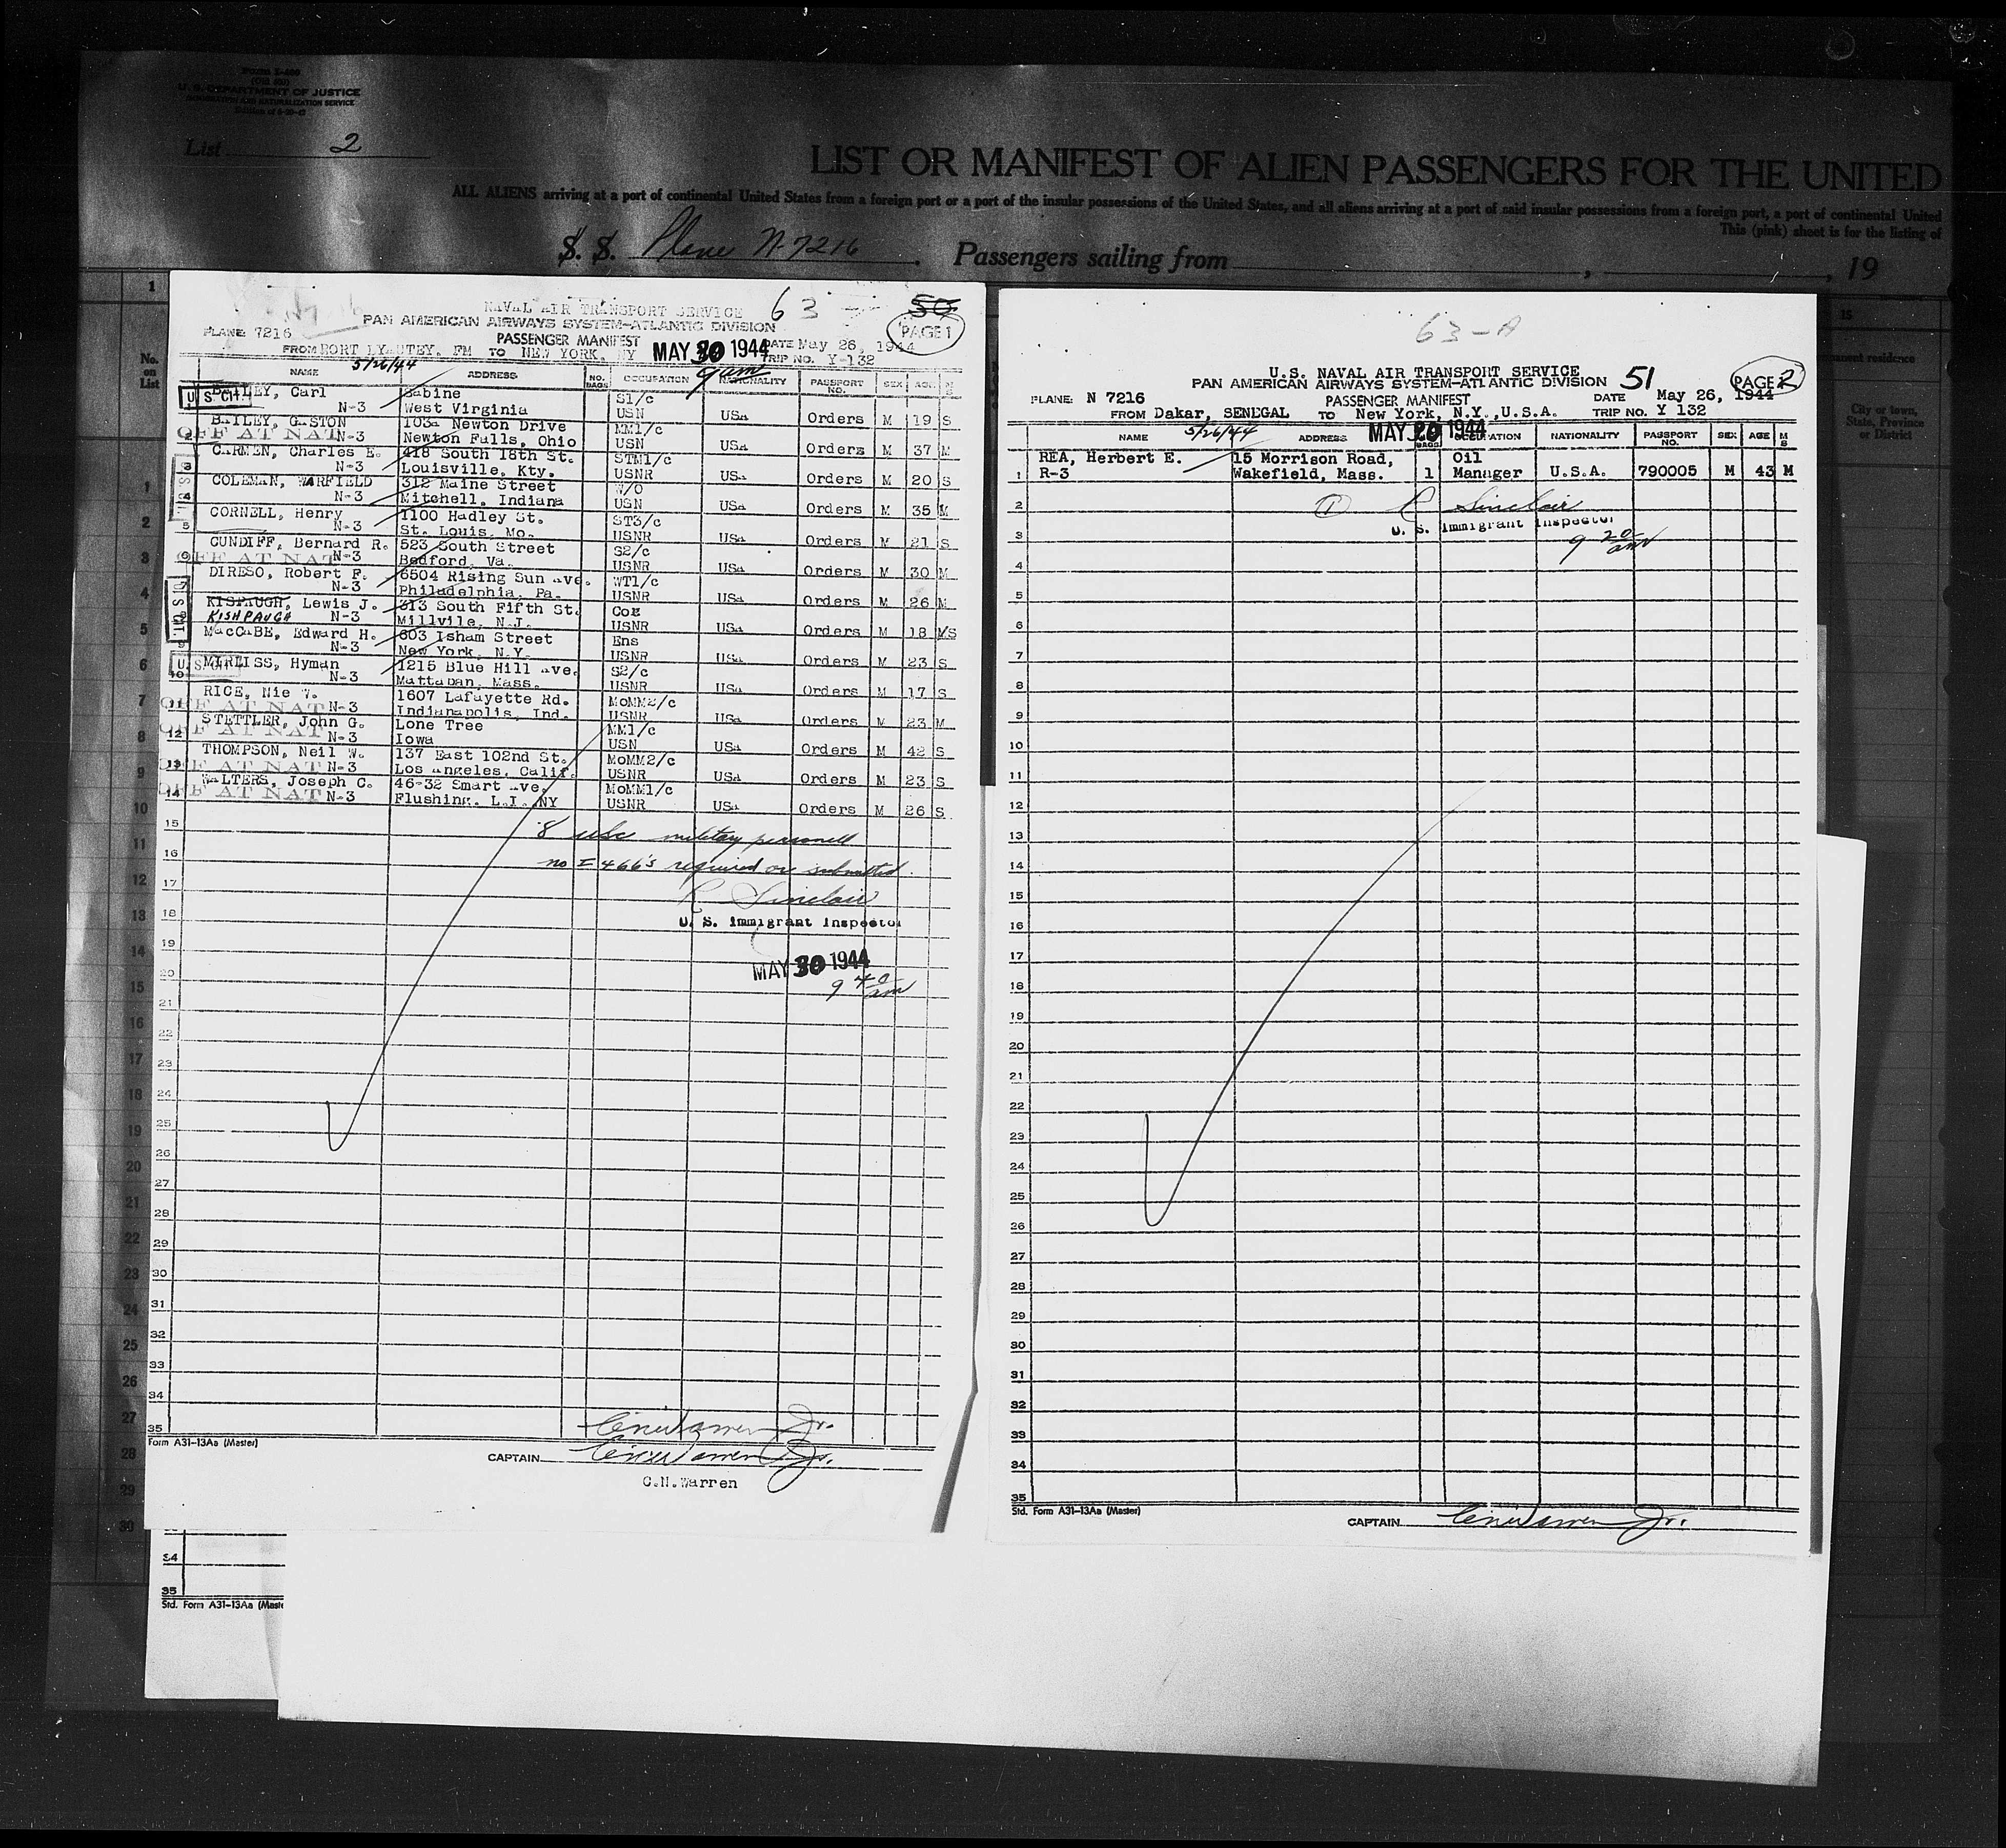 FORM I-466
(Old 500)
U. S. DEPARTMENT OF JUSTICE
IMMIGRATION AND NATURALIZATION SERVICE
List 2
LIST OR MANIFEST OF ALIEN PASSENGERS FOR THE UNITED
ALL ALIENS arriving at a port of continental United States from a foreign port or a port of the insular possessions of the United States, and all aliens arriving at a port of said insular possessions from a foreign port, a port of continental United
This (pink) sheet is for the listing of
S. S. Plane N-7216 . Passengers sailing from , , 19
1
No. on List
15
permanent residence
City or town, State, Province or District
NAVAL AIR TRANSPORT SERVICE 63 50
PAN AMERICAN AIRWAYS SYSTEM-ATLANTIC DIVISION PAGE 1
PLANE 7216 PASSENGER MANIFEST DATE May 26, 1944
FROM PORT LYAUTEY. FM TO NEW YORK, NY MAY 30 1944 TRIP NO. Y-132
5/26/44 9 am
NAME ADDRESS NO. BAGS OCCUPATION NATIONALITY PASSPORT NO. SEX AGE M S
U S CIT. BAILEY, Carl Sabine S1/c
N-3 West Virginia USN USA Orders M 19 S
BAILEY, GASTON 103a Newton Drive MM1/c
2 OFF AT NAT N-3 Newton Falls, Ohio USN USA Orders M 37 M
CARMEN, Charles E. 418 South 18th St. STM1/c
3 N-3 Louisville, Kty. USNR USA Orders M 20 S
COLEMAN, WARFIELD 312 Maine Street W/O
4 N-3 Mitchell, Indiana USN USA Orders M 35 M
CORNELL, Henry 1100 Hadley St. ST3/c
5 N-3 St. Louis, Mo. USNR USA Orders M 21 S
CUNDIFF, Bernard R. 523 South Street S2/c
6 OFF AT NAT N-3 Bedford, Va. USNR USA Orders M 30 M
DIRESO, Robert F. 6504 Rising Sun Ave. WT1/c
7 N-3 Philadelphia, Pa. USNR USA Orders M 26 M
KISPAUGH, Lewis J. 313 South Fifth St. Cox
KISHPAUGH N-3 Millvile, N.J. USNR USA Orders M 18 M S
MacCABE, Edward H. 603 Isham Street Ens
9 N-3 New York, N.Y. USNR USA Orders M 23 S
U. S. CIT. MIRLISS, Hyman 1215 Blue Hill Ave. S2/c
10 N-3 Mattapan, Mass. USNR USA Orders M 17 S
RICE, Nie W. 1607 Lafayette Rd. MoMM2/c
11 OFF AT NAT N-3 Indianapolis, Ind. USNR USA Orders M 23 M
STETTLER, John G. Lone Tree MM1/c
12 OFF AT NAT N-3 Iowa USN USA Orders M 42 S
THOMPSON, Neil W. 137 East 102nd St. MoMM2/c
13 OFF AT NAT N-3 Los Angeles, Calif. USNR USA Orders M 23 S
WALTERS, Joseph C. 46-32 Smart Ave. MoMM1/c
14 OFF AT NAT N-3 Flushing, L.I. NY USNR USA Orders M 26 S
15 8 usc military personell
16 no I-466's required or submitted.
17 R Sinclair
18 U. S. Immigrant Inspector
19
20 MAY 30 1944
9 40 am
21
22
23
24
25
26
27
28
29
30
31
32
33
34
35
Form A31-13Aa (Master)
CAPTAIN
C.N.Warren
63-A
U.S. NAVAL AIR TRANSPORT SERVICE 51 PAGE 2
PAN AMERICAN AIRWAYS SYSTEM-ATLANTIC DIVISION
PLANE: N 7216 PASSENGER MANIFEST DATE May 26, 1944
FROM Dakar, SENEGAL TO New York, N.Y.,U.S.A. TRIP NO. Y 132
5/26/44 MAY 30 1944
NAME ADDRESS BAGS OCCUPATION NATIONALITY PASSPORT NO. SEX AGE M S
REA, Herbert E. 15 Morrison Road, Oil
1 R-3 Wakefield, Mass. 1 Manager U.S.A. 790005 M 43 M
2 1 R Sinclair
U. S. Immigrant Inspector
3 9 20 am
4
5
6
7
8
9
10
11
12
13
14
15
16
17
18
19
20
21
22
23
24
25
26
27
28
29
30
31
32
33
34
35
Std. Form A31-13Aa (Master)
CAPTAIN
34
35
Std. Form A31-13Aa (Maste